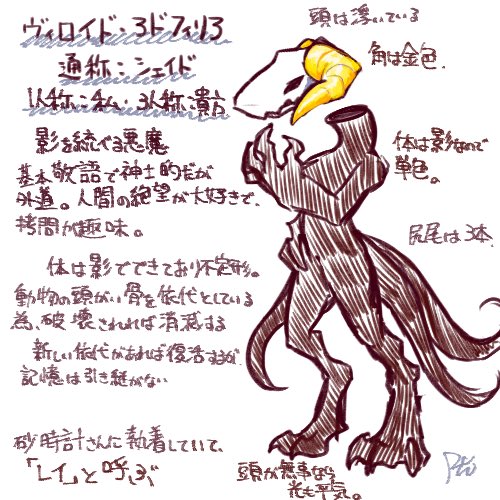 ヴィロイド・ろドフィリろ
通称：シェイド
1人称：私・3人称：貴方
影を統べる悪魔
基本敬語で紳士的だが
外道。人間の絶望が大好きで、
拷問が趣味。
体は影でできており不定形。
動物の頭がい骨を依代としている
為、破壊されれば消滅する
新しい依代があれば復活するが、
記憶は引き継がない
砂時計さんに執着していて、
「レイ」と呼ぶ
頭は浮いている
角は金色.
体は影なので
単色。
尻尾は3本
頭が無事なら
光も平気。